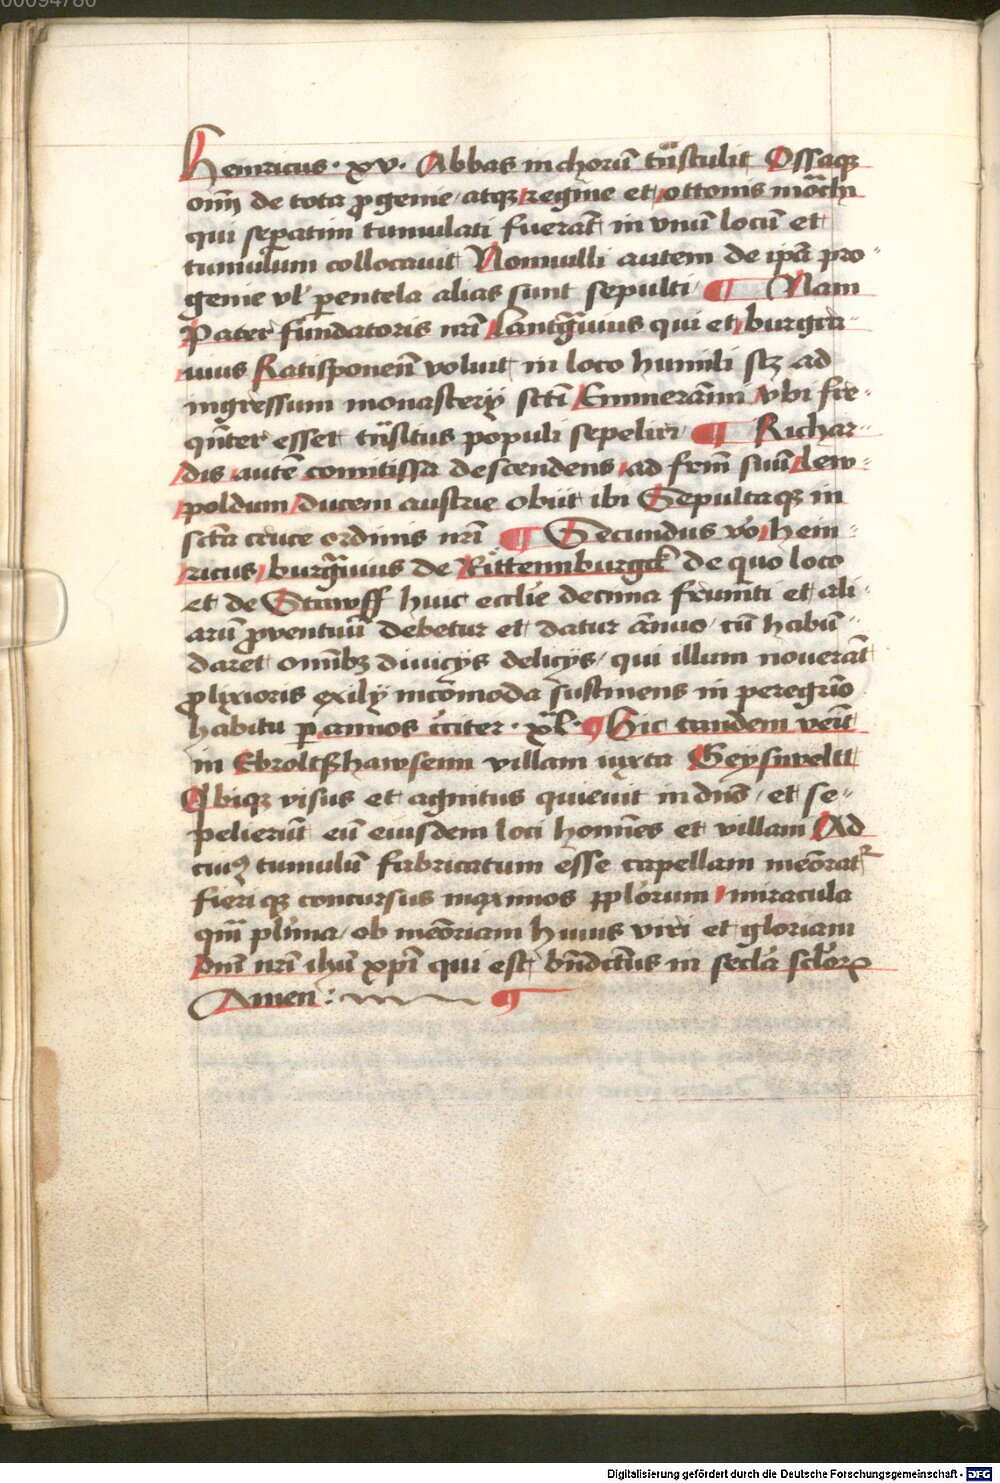 00094780
Heinricus · xv · Abbas in chorū tn̄stulit Ossaqꝫ
oīm de tota ꝓgenie atqꝫ regine et ottonis mōchi
qui sepatim tumulati fuerāt in vnū locū et
tumulum collocauit Nonnulli autem de ip̄a pro-
genie vl' ꝑentela alias sunt sepulti ¶ Nam
Pater fundatoris nr̄i Lantgͣuius qui et burgra-
uius Ratisponeñ voluit in loco humili scꝫ ad
ingressum monasterij sct̄i Emmerāmi vbi fre-
qn̄ter esset tn̄situs populi sepeliri ¶ Richar-
dis autē comitissa descendens ad frēm suū Lew-
poldum ducem austrie obiit ibi Sepultaqꝫ in
sct̄a cruce ordinis nr̄i ¶ Secundus vō hein-
ricus burgͣuius de Rittennburgck de quo loco
et de Stawff huic ecclīe decima frumēti et ali-
arū ꝓventuū debetur et datur ānuo cū habū-
daret omībꝫ diuicijs delicijs qui illum nouerāt
ꝓlixioris exilij incōmoda sustinens in peregrīo
habitu ꝑ annos cciter · xl · ¶ Hic tandem venit
in Ebroltzhawsenn villam iuxta Geysnveltt
Vbiqꝫ visus et agnitus quieuit in dn̄o et se-
pelierūt eū eiusdem loci homīes et villani Ad
cuiꝰ tumulū fabricatum esse capellam mēorat᷑
fieri qꝫ concursus maximos pp̄lorum miracula
qm̄ plīma ob mēoriam huius viri et gloriam
Dn̄i nr̄i ihū xp̄i qui est bn̄dictus in sec̄la sc̄lorꝫ
Amen : ¶
Digitalisierung gefördert durch die Deutsche Forschungsgemeinschaft - DFG